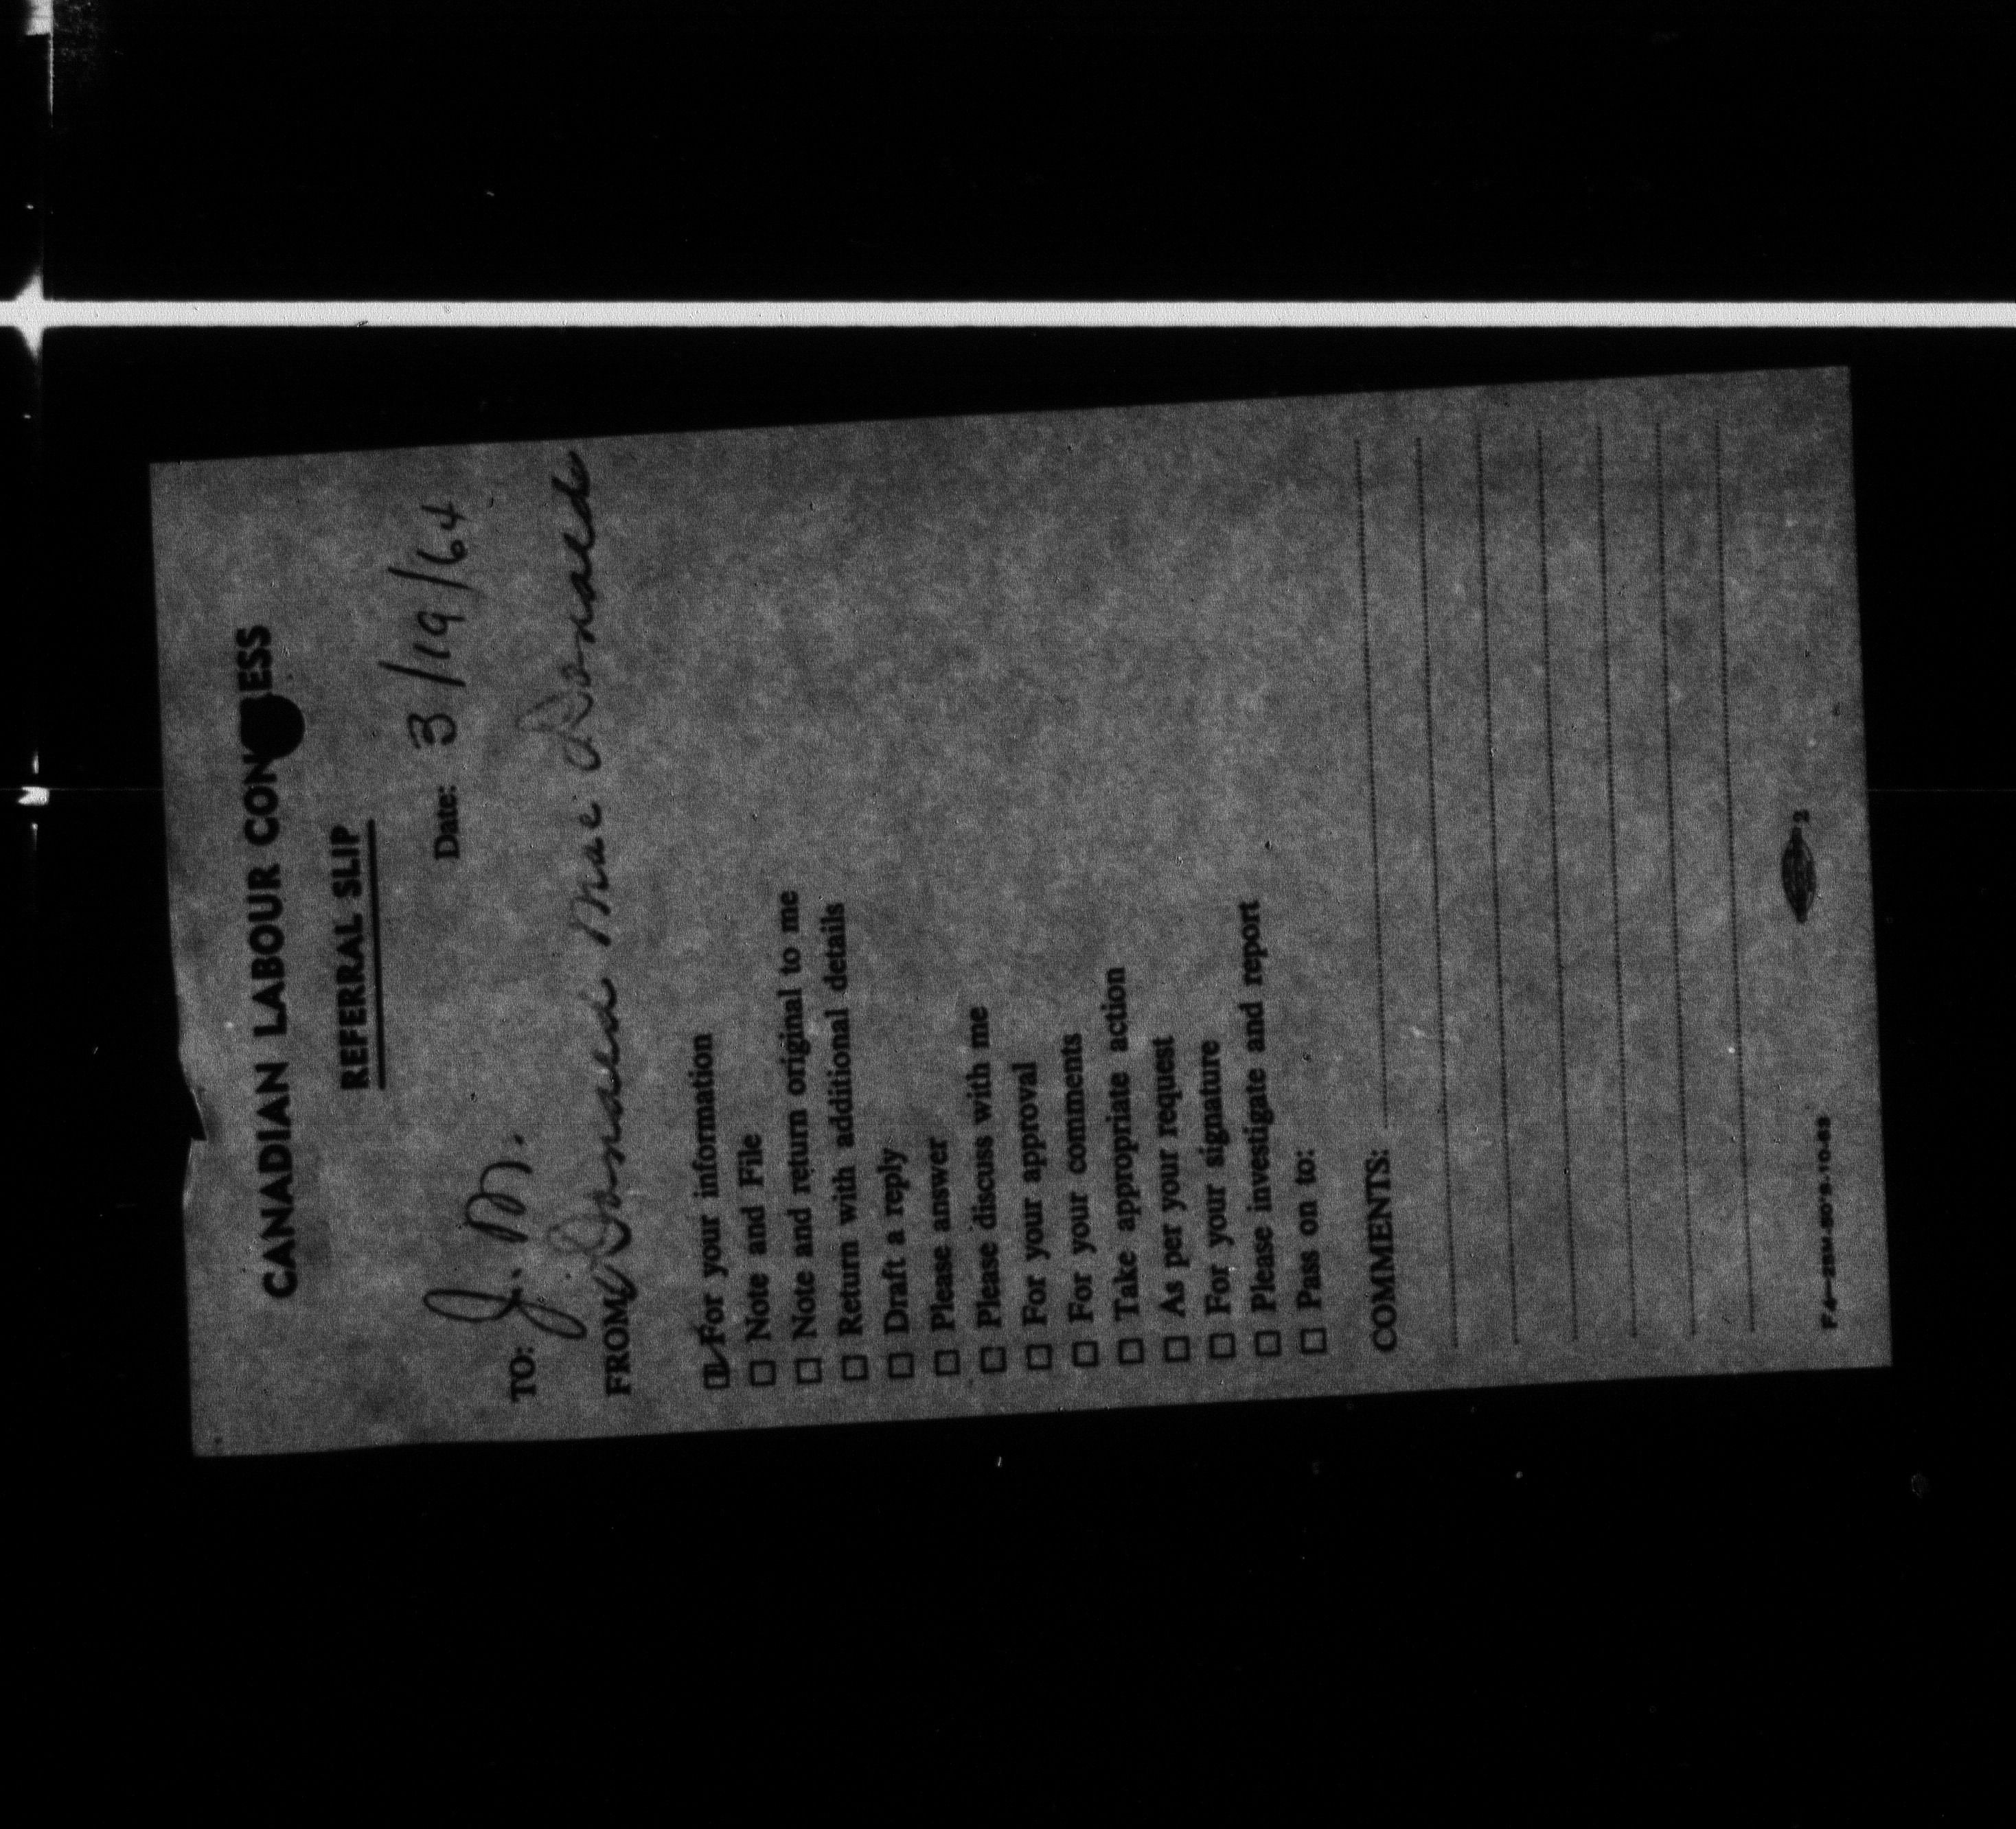 CANADIAN LABOUR CONGRESS
REFERRAL SLIP
Date: 3/19/64
TO: J. M.
FROM Donald Mac Donald
☑ For your information
☐ Note and File
☐ Note and return original to me
☐ Return with additional details
☐ Draft a reply
☐ Please answer
☐ Please discuss with me
☐ For your approval
☐ For your comments
☐ Take appropriate action
☐ As per your request
☐ For your signature
☐ Please investigate and report
☐ Pass on to:
COMMENTS:
F4—25M-50's-10-63
2